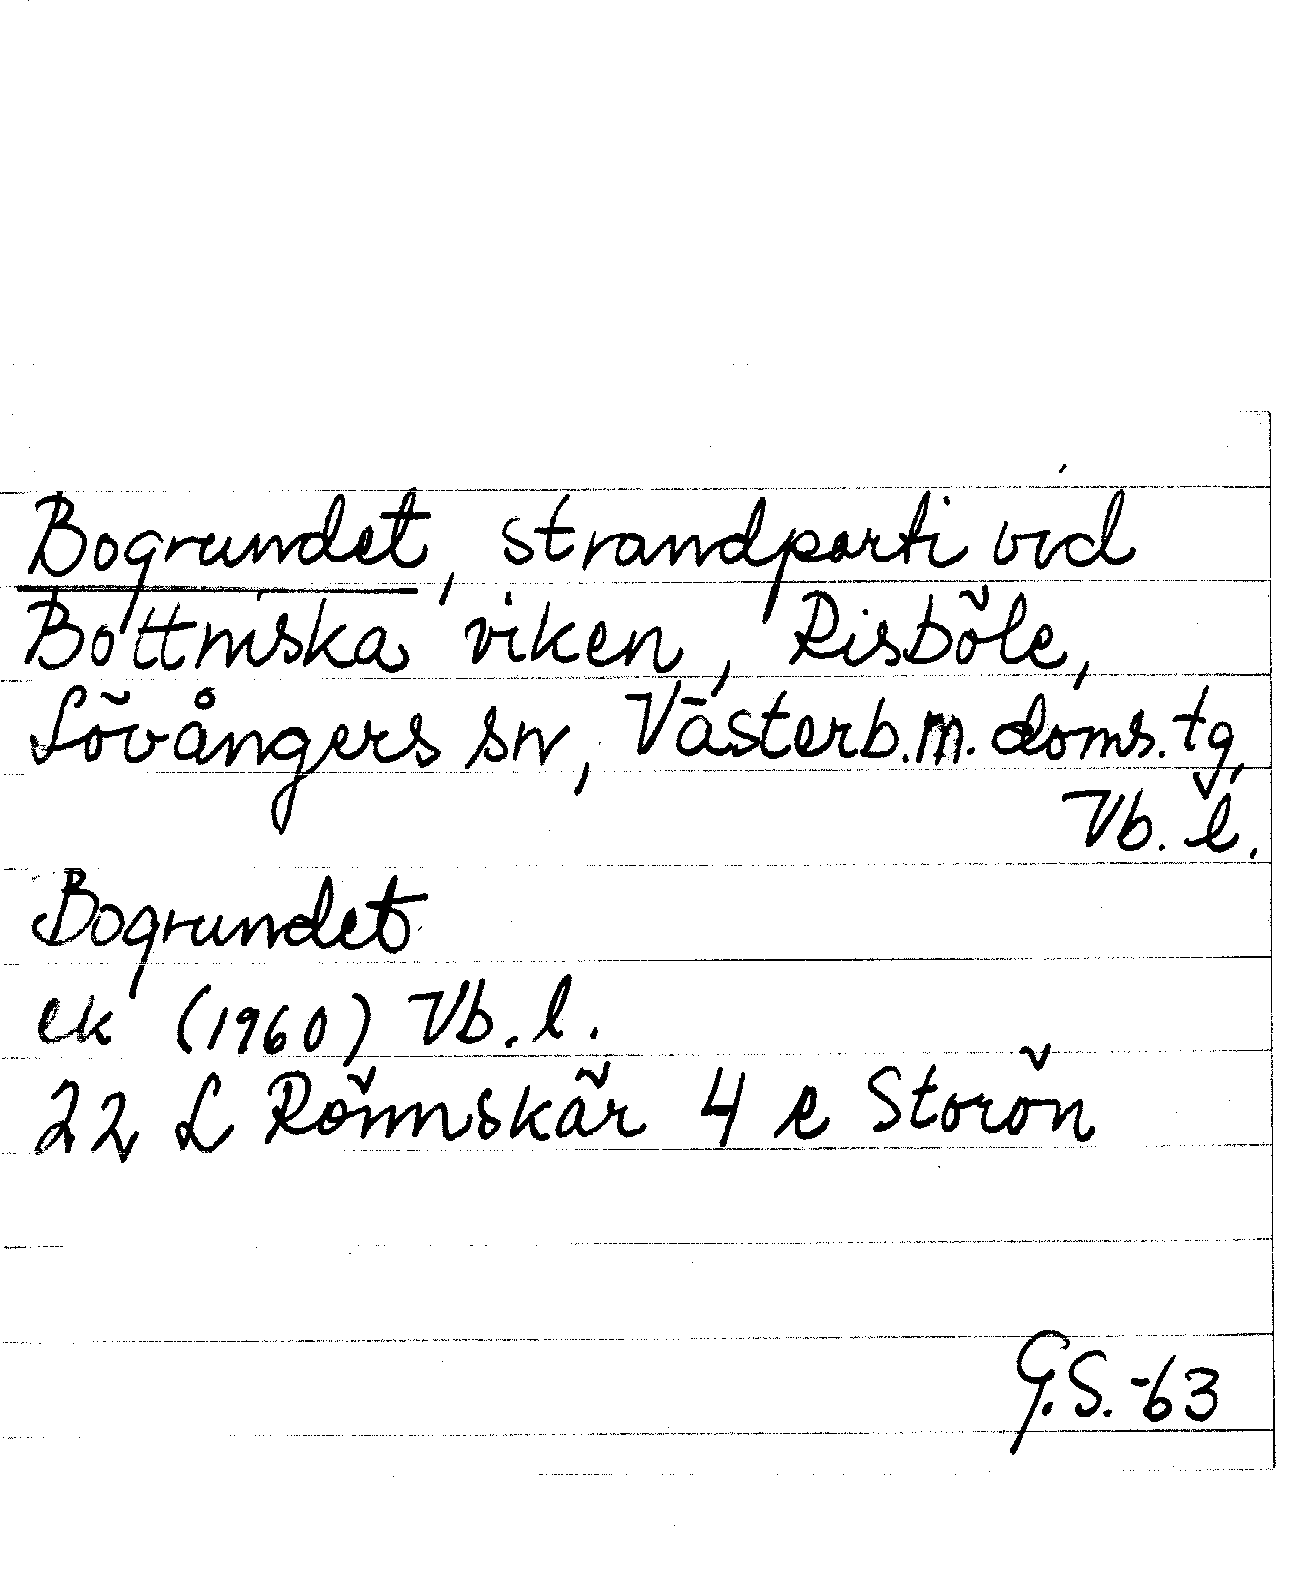 Bogrundet, strandparti vid
Bottniska viken, Risböle,
Lövångers sn, Västerb.m. doms. tg,
Vb. l.
Bogrundet
ek (1960) Vb. l.
22 L Rönnskär 4 e Storön
G.S. -63